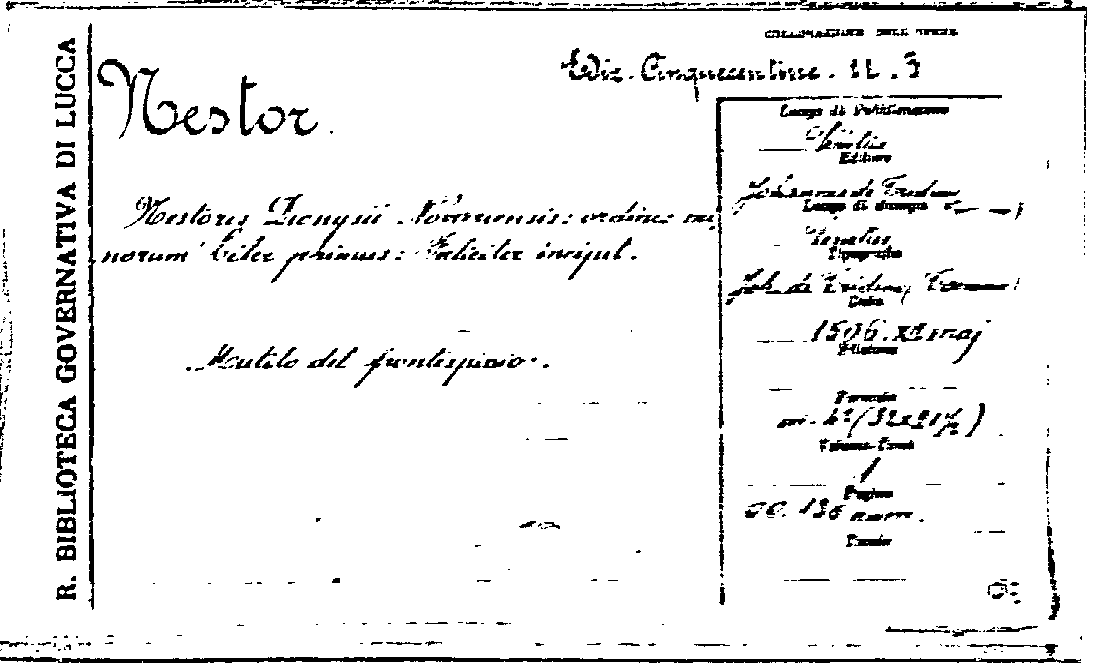 R. BIBLIOTECA GOVERNATIVA DI LUCCA
COLLOCAZIONE DELL'OPERA
Ediz. Cinquecentine. 11. 3
Nestor.
Nestoris Dionysii Novariensis: ordinis mi
norum liber primus: Foeliciter incipit.
Mutilo del frontispizio.
Luogo di Pubblicazione
Venetiis
Editore
Johannes de Tridino
Luogo di stampa
Venetiis
Tipografo
Joh. de Tridino,
Data
1506. maj
Formato
in-4º (32x21½)
Volume-Tomo
1
Pagine
cc. 136 num.